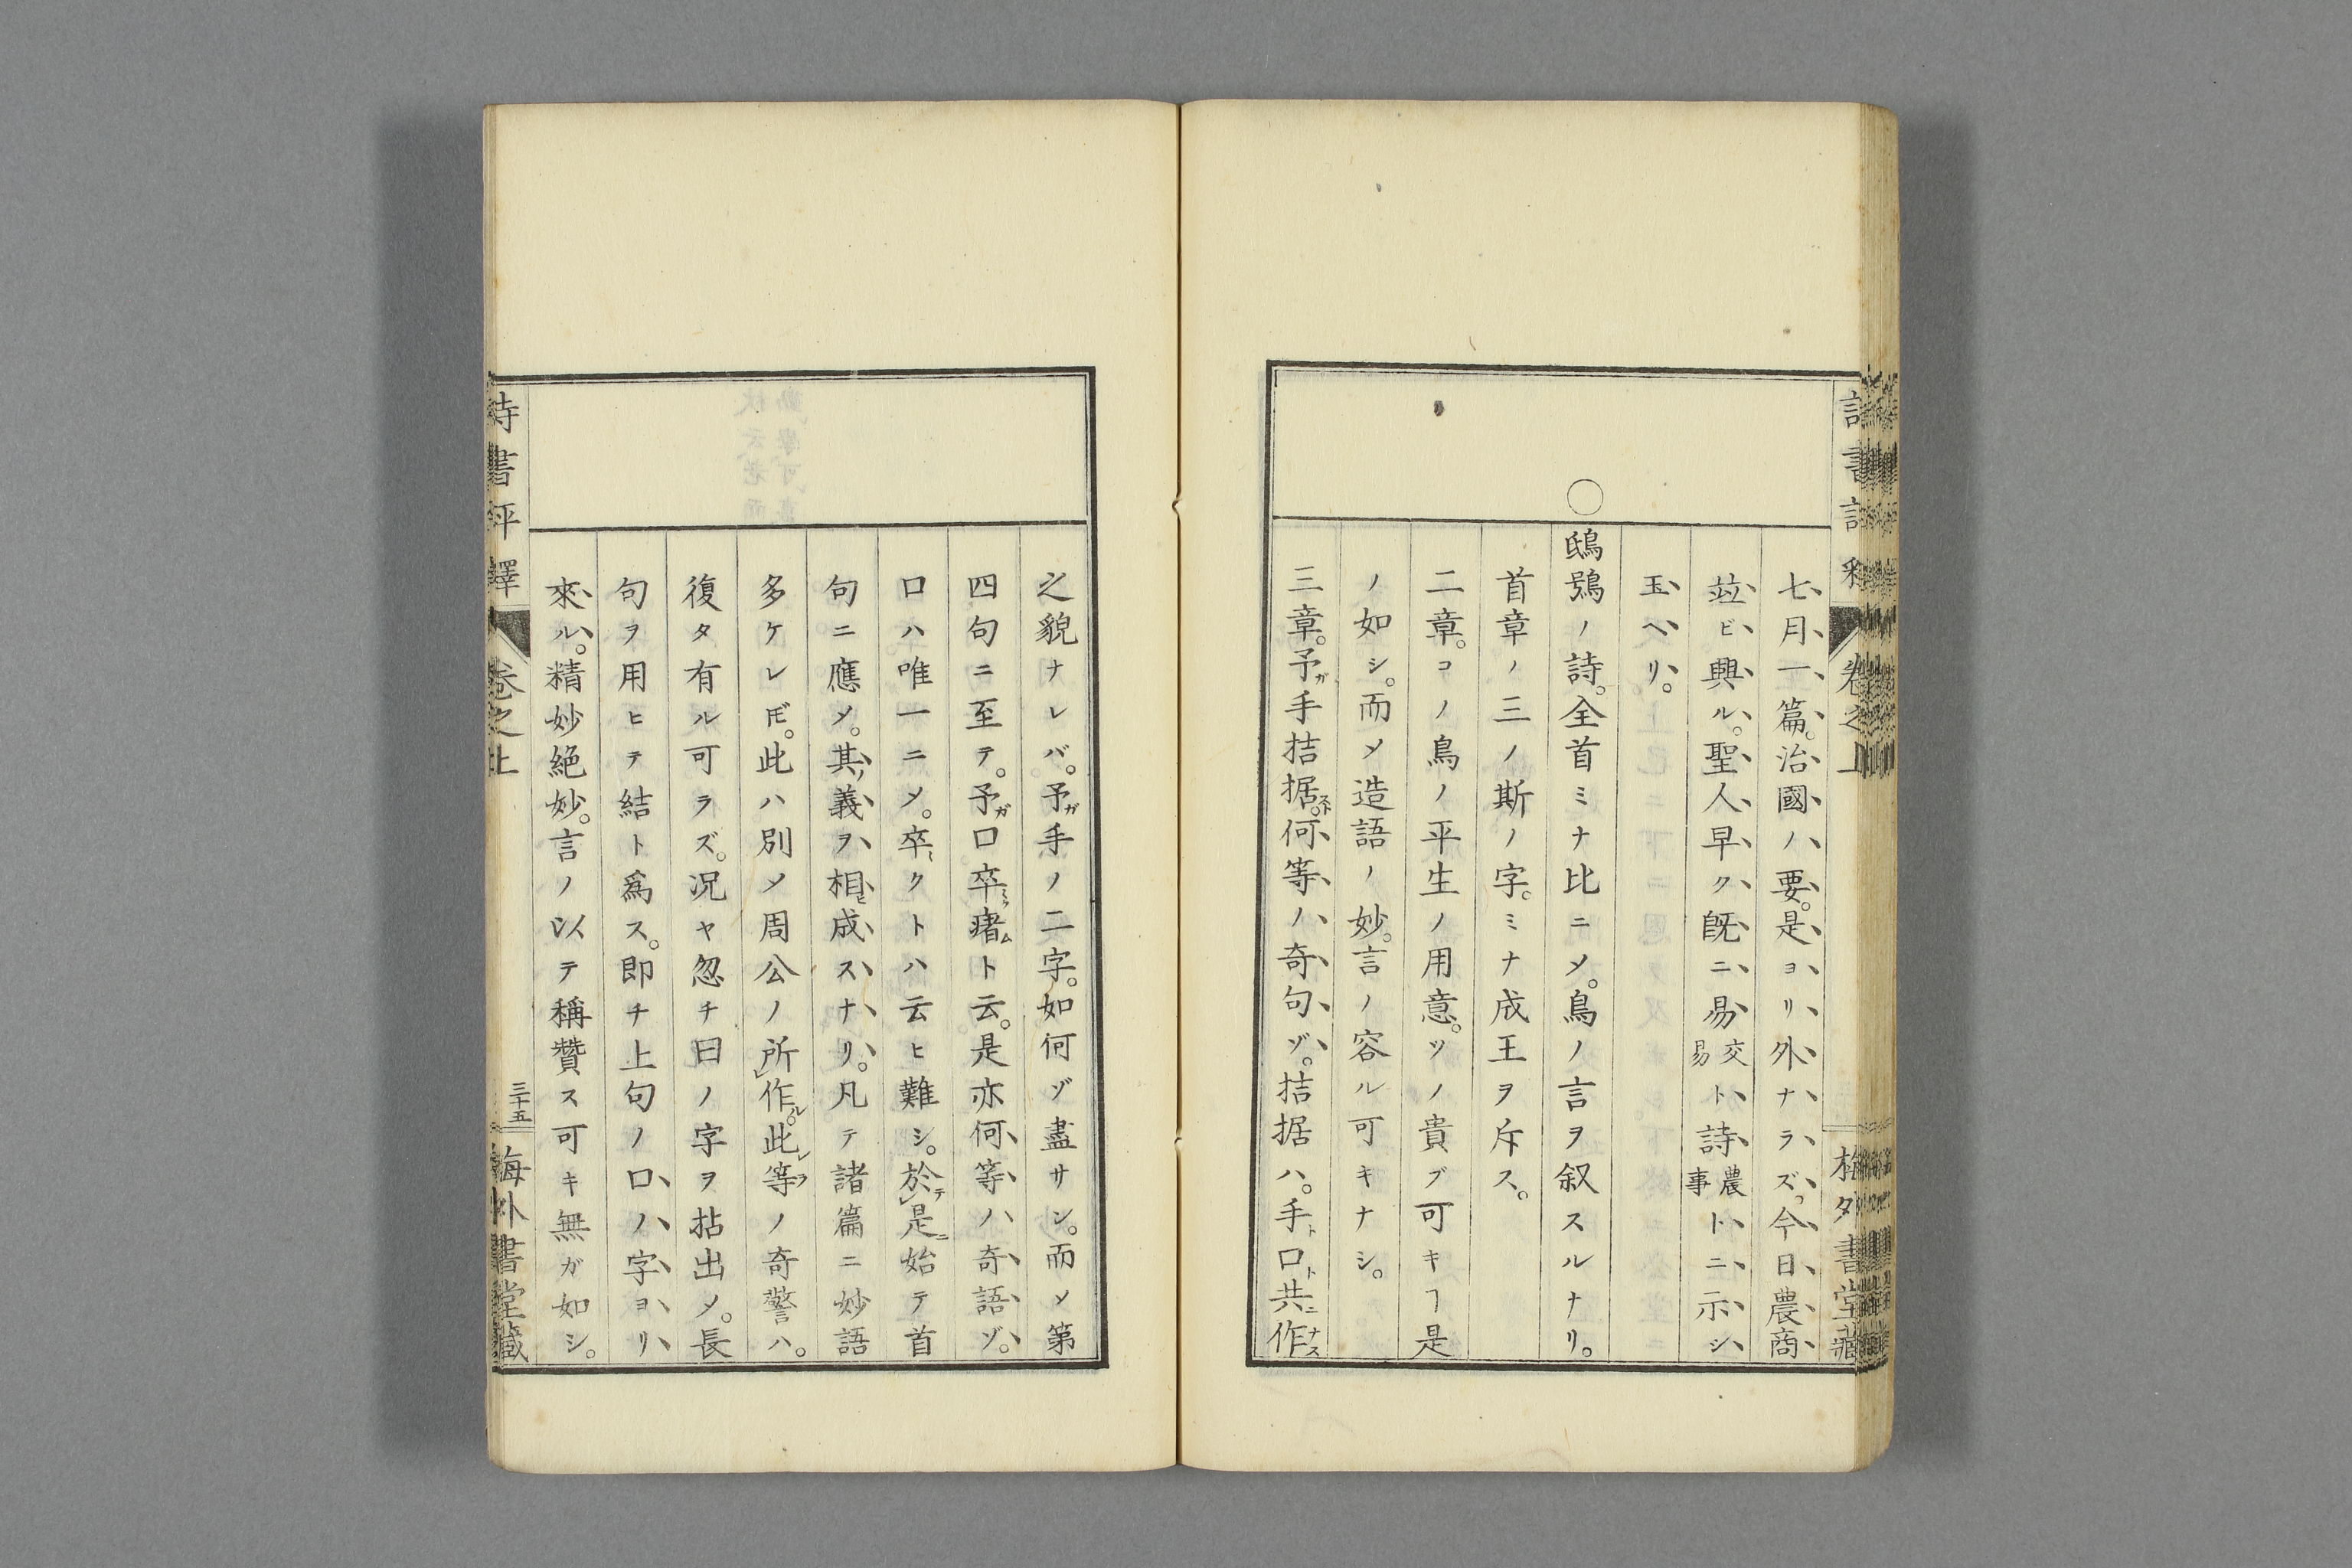 七月一篇。治國ノ要。是ヨリ外ナラズ。今日農商
竝ビ興ル。聖人早ク既ニ易交易ト詩農事トニ示シ
玉ヘリ。
○鴟鴞ノ詩。全首ミナ比ニメ。鳥ノ言ヲ叙スルナリ。
首章ノ三ノ斯ノ字。ミナ成王ヲ斥ス。
二章。コノ鳥ノ平生ノ用意。ソノ貴ブ可キヿ是
ノ如シ。而メ造語ノ妙。言ノ容ル可キナシ。
三章。予ガ手拮据スト。何等ノ奇句ゾ。拮据ハ。手ト口ト共ニ作ナス
之貌ナレバ。予ガ手ノ二字。如何ゾ盡サン。而メ第
四句ニ至テ。予ガ口卒瘏ムト云。是亦何等ノ奇語ゾ。
口ハ唯一ニメ。卒ミクトハ云ヒ難シ。於テレ是ニ始テ首
句ニ應メ。其ノ義ヲ相ヒ成スナリ。凡テ諸篇ニ妙語
多ケレ𪜈。此ハ別メ周公ノ所レ作ル。此レ等ラノ奇警ハ。
復タ有ル可ラズ。況ヤ忽チ曰ノ字ヲ拈出メ。長
句ヲ用ヒテ結ト爲ス。即チ上句ノ口ノ字ヨリ
來ル。精妙絶妙。言ノ以テ稱贊ス可キ無ガ如シ。
詩書評釋
卷之上
三十五
梅外書堂藏